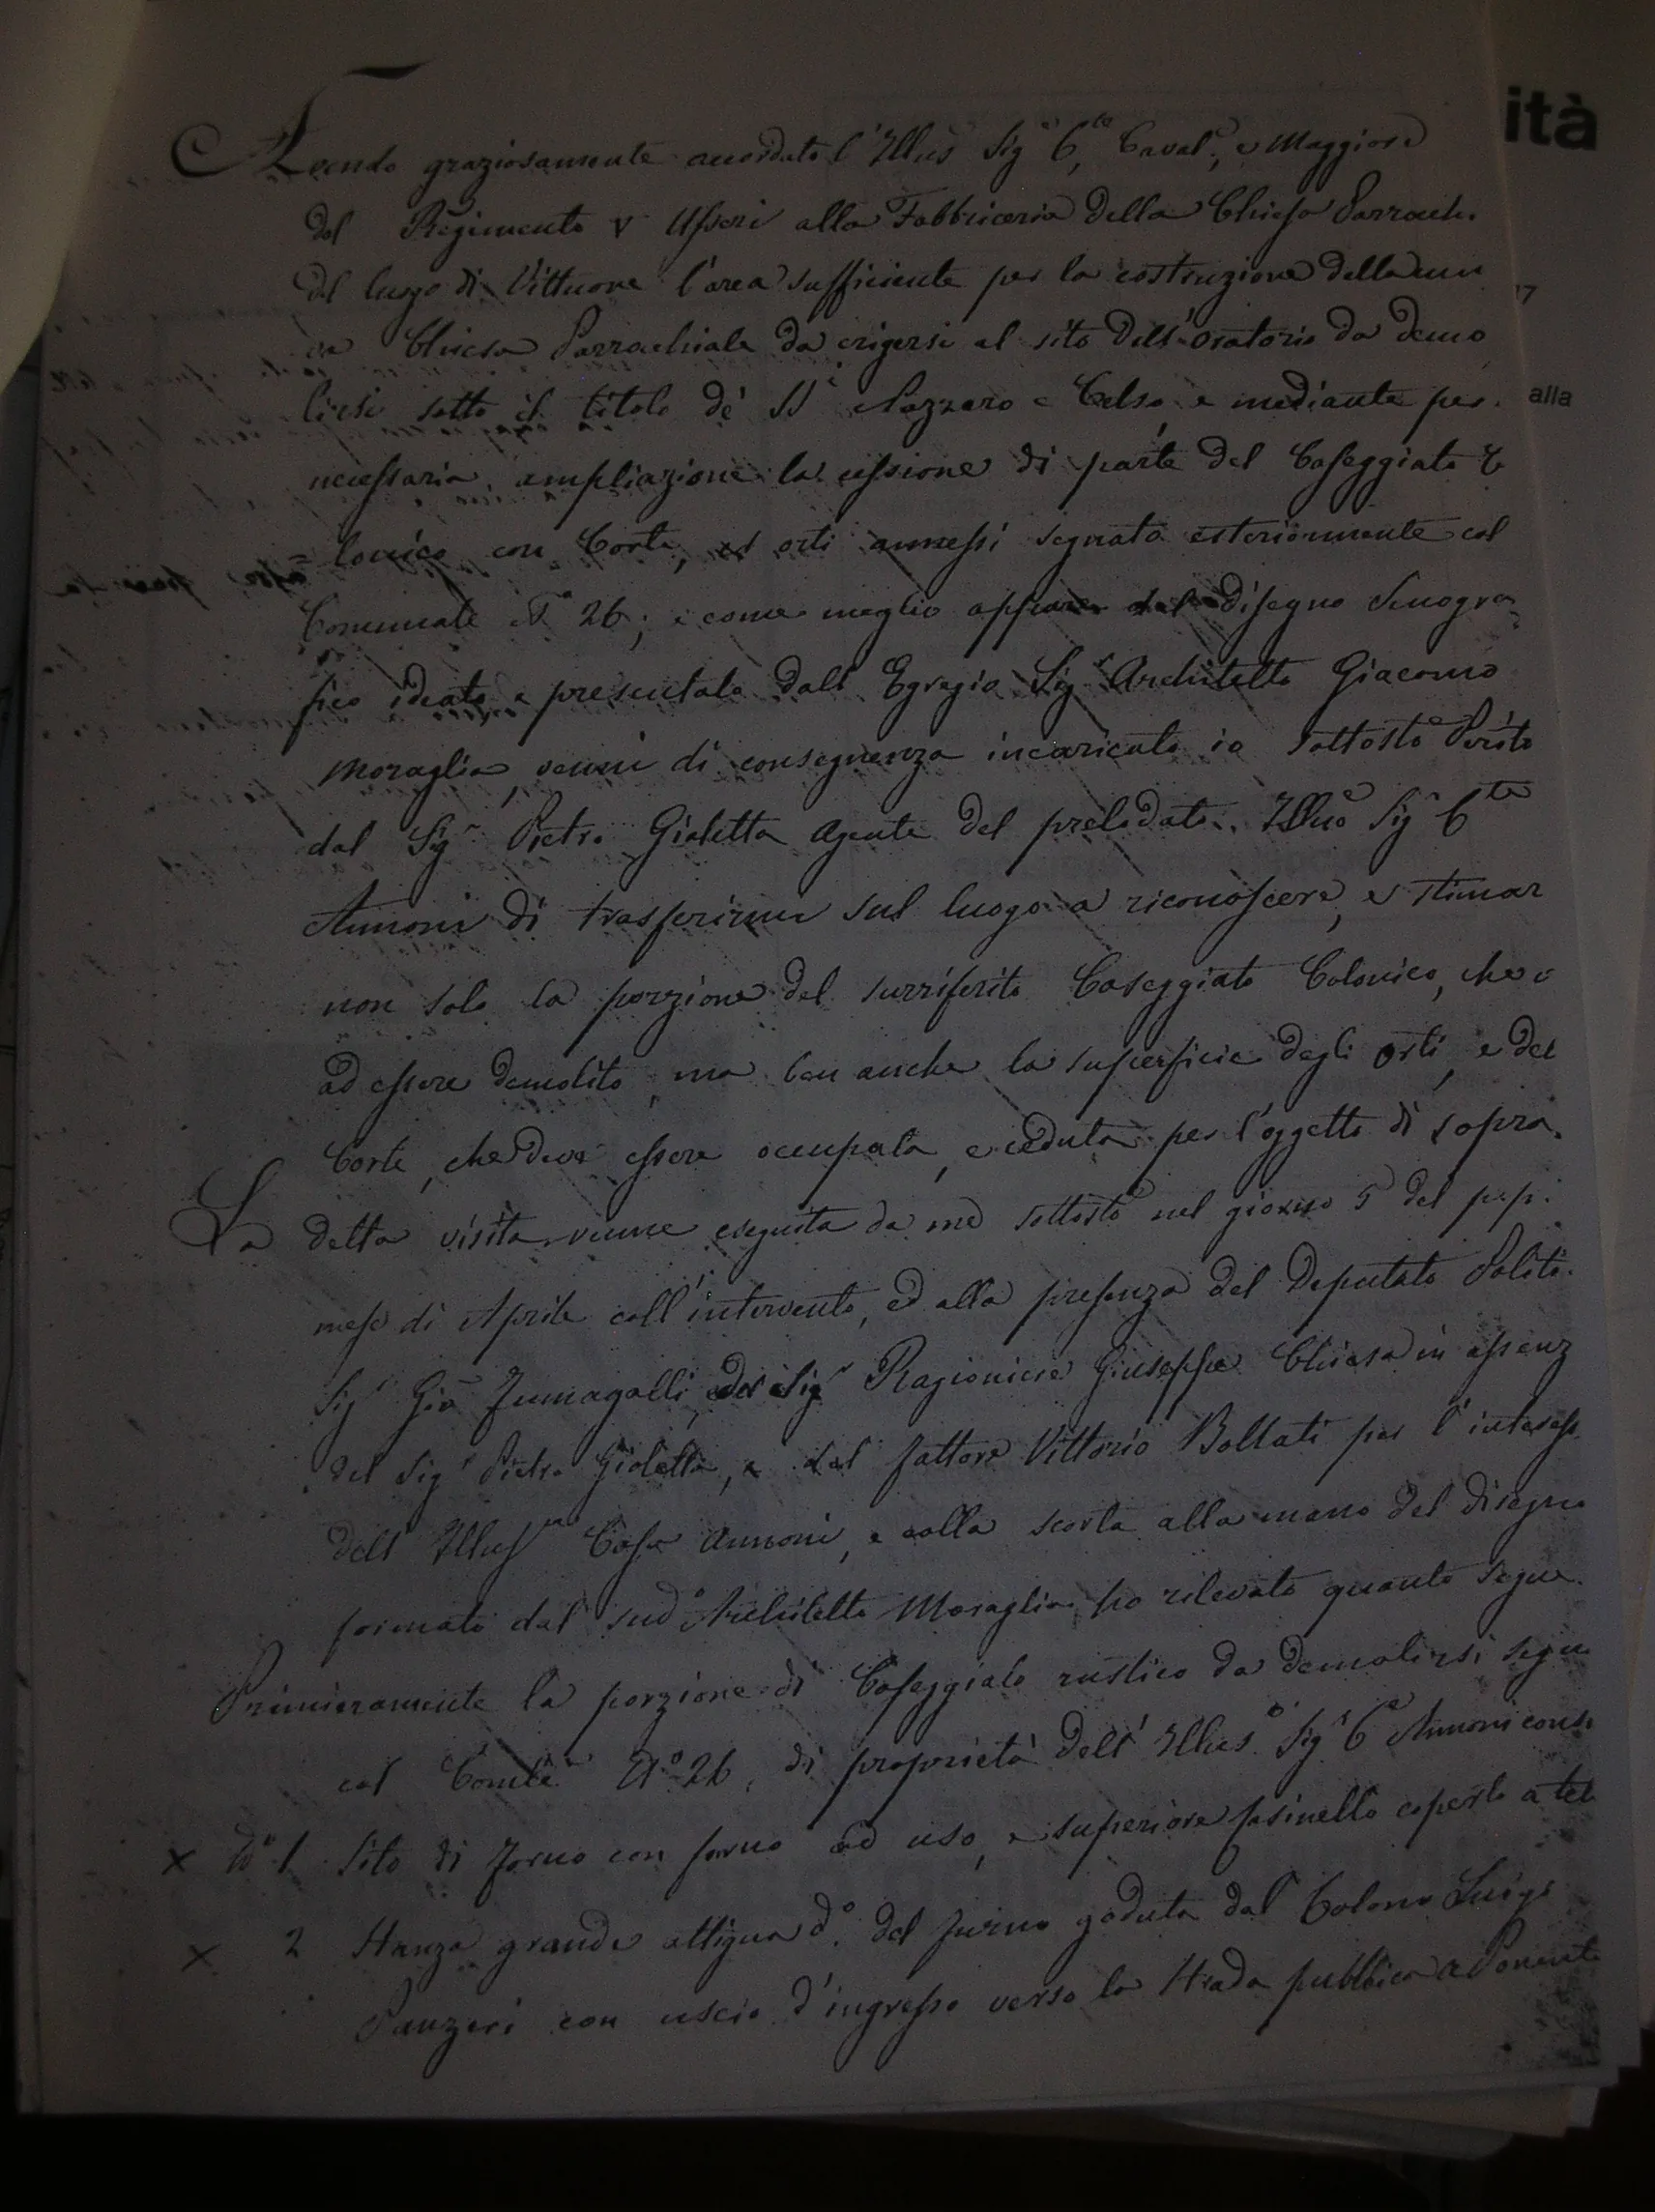 Avendo graziosamente accordato l'Illuso Sigr Cte, Cavalre, e Maggiore
del Regimento V Usseri alla Fabbriceria della Chiesa Parrochle
del luogo di Vittuone l'area sufficiente per la costruzione della nuo
va Chiesa Parrochiale da erigersi al sito dell'Oratorio da demo
lirsi sotto il titolo de' SSi Nazzaro e Celso e mediante per
necessaria ampliazione la cessione di parte del Caseggiato Co
=lonico con Corte, ed orti annessi segnata esteriormente col
Comunale No 26; e come meglio appare dal disegno Scenogra
fico ideato e presentato dall'Egregio Sigr Architetto Giacomo
Moraglia, venni di conseguenza incaricato io sottosto Perito
dal Sigr Pietro Gioletta Agente del prelodato Illuso Sigr Cte
Annoni di trasferirmi sul luogo a riconoscere, e stimar
non solo la porzione del surriferito Caseggiato Colonico, che
ad essere demolito, ma ben anche la superficie degli orti, e del
Corte, che deve essere occupata, e ceduta per l'oggetto di sopra.
La detta visita venne eseguita da me sottosto nel giorno 5 del p.p.
mese di Aprile coll'intervento, ed alla presenza del Deputato Polito
Sigr Gio Fumagalli, del Sigr Ragioniere Giuseppe Chiesa in assenz
del Sigr Pietro Gioletta, e del fattore Vittorio Bollati per l'interess
dell'Illusma Casa Annoni, e colla scorta alla mano del disegno
formato dal sudo Architetto Moraglia ho rilevato quanto segue.
Primieramente la porzione di Caseggiato rustico da demolirsi segn
col Comle No 26, di proprietà dell'Illuso Sigr Cte Annoni consi
X No 1 Sito di Forno con forno ad uso, e superiore casinello coperto a tet
X 2 Stanza grande attigua do del forno goduta dal Colono Luigi
Panzeri con uscio d'ingresso verso la Strada pubblica a Ponente
ità
17
alla